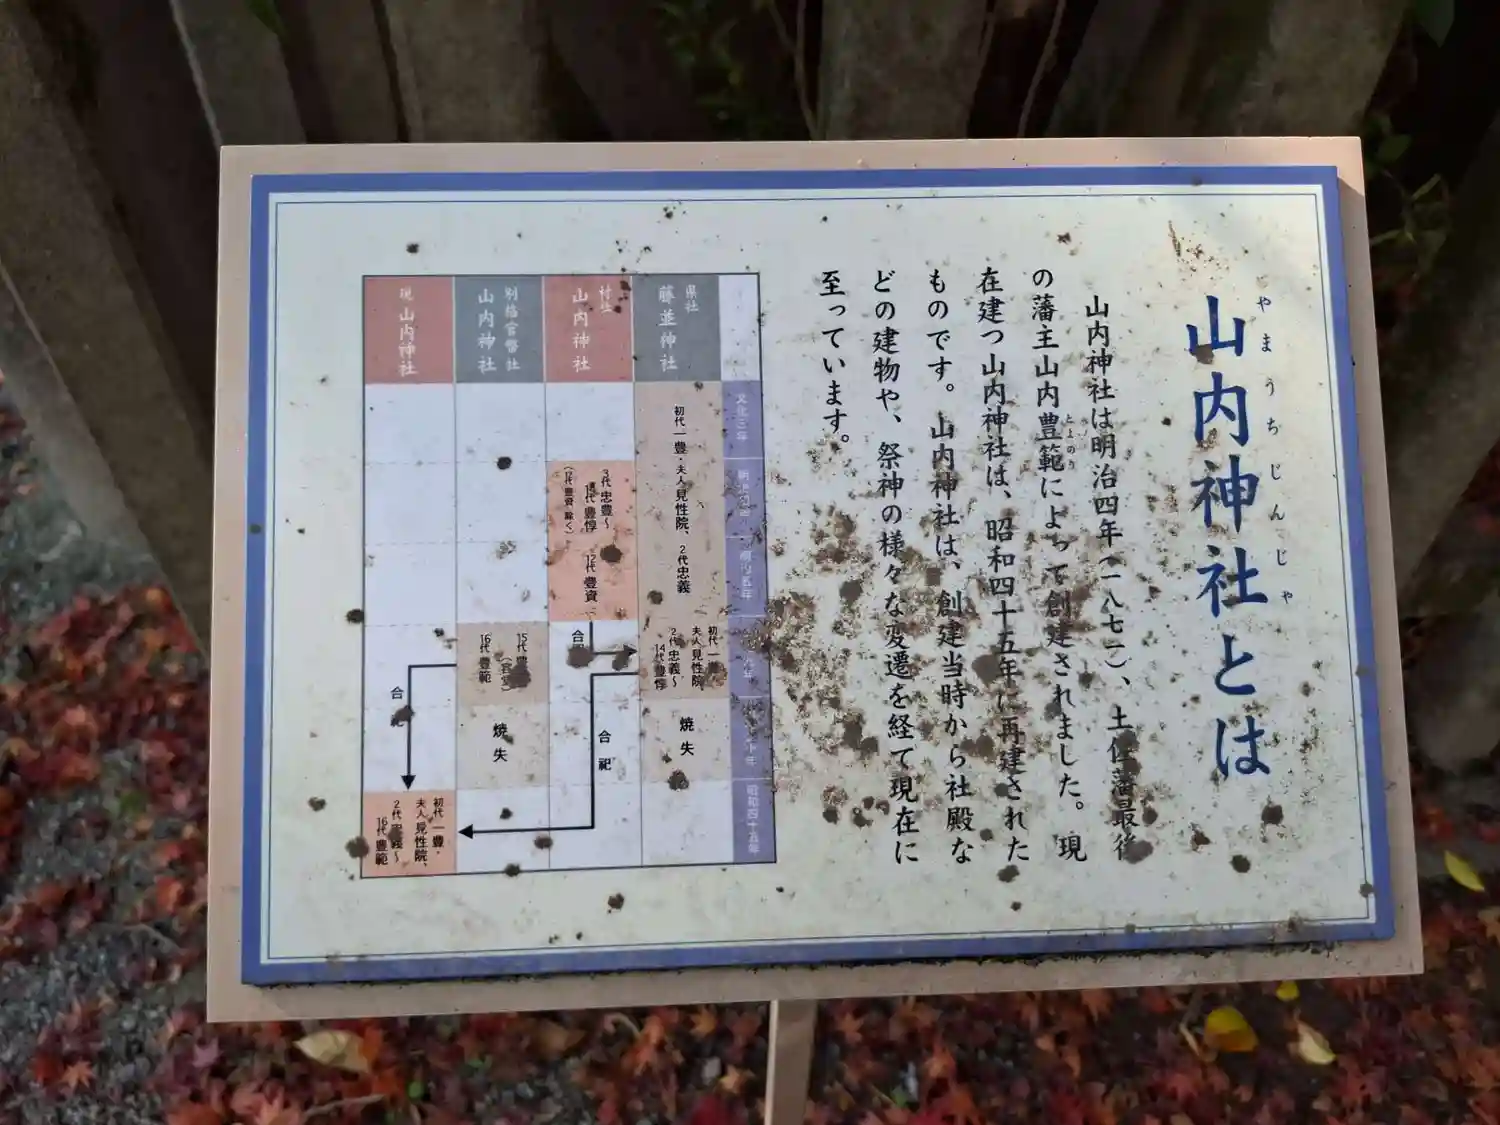 山内神社とは
やまうちじんじゃ
山内神社は明治四年(一八七一)、土佐藩最後
の藩主山内豊範によって創建されました。現
とよのり
在建つ山内神社は、昭和四十五年に再建された
ものです。山内神社は、創建当時から社殿な
どの建物や、祭神の様々な変遷を経て現在に
至っています。
文化三年
昭和四十五年
県社
藤並神社
初代一豊・夫人見性院、2代忠義
初代一豊
夫人見性院、
2代忠義〜
14代豊惇
焼失
村社
山内神社
3代忠豊〜
14代豊惇
(12代豊資 除く)
12代豊資
合
合祀
別格官幣社
山内神社
15代豊
16代豊範
焼失
現山内神社
合
初代一豊・
夫人見性院、
2代忠義〜
16代豊範